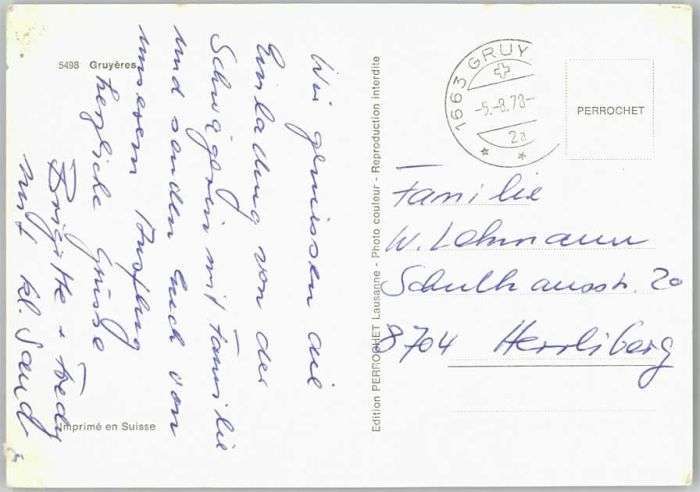 5498 Gruyères
Wir geniessen die
Einladung von der
Schwägerin mit Familie
und senden Euch von
unserem Ausflug
herzliche Grüsse
Brigitte + Fredy
mit kl. Sandy
Imprimé en Suisse
Edition PERROCHET Lausanne - Photo couleur - Reproduction interdite
1663 GRUY
-5.-8.78-
2a
PERROCHET
Familie
W. Lehmann
Schulhausstr. 20
8704 Herrliberg